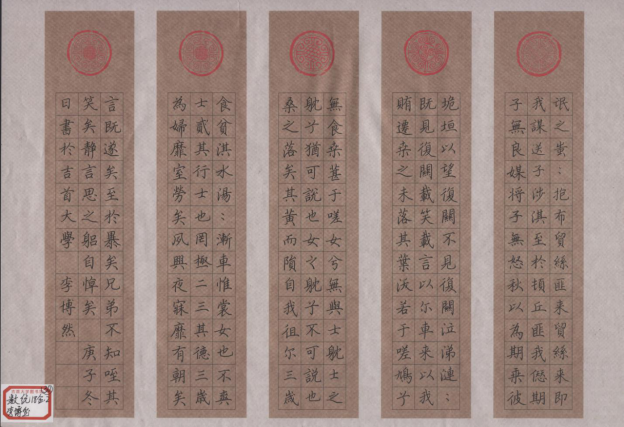 氓之蚩〻抱布貿絲匪來貿絲來即
我謀送子涉淇至於頓丘匪我愆期
子無良媒將子無怒秋以為期乘彼
垝垣以望復關不見復關泣涕漣〻
既見復關載笑載言以尔車來以我
賄遷桑之未落其葉沃若于嗟鳩兮
無食桑葚于嗟女兮無與士躭士之
躭兮猶可說也女之躭兮不可說也
桑之落矣其黃而隕自我徂尔三歲
食貧淇水湯〻漸車惟裳女也不爽
士貳其行士也罔極二三其德三歲
為婦靡室勞矣夙興夜寐靡有朝矣
言既遂矣至於暴矣兄弟不知咥其
笑矣靜言思之躬自悼矣 庚子冬
日書於吉首大學 李博然